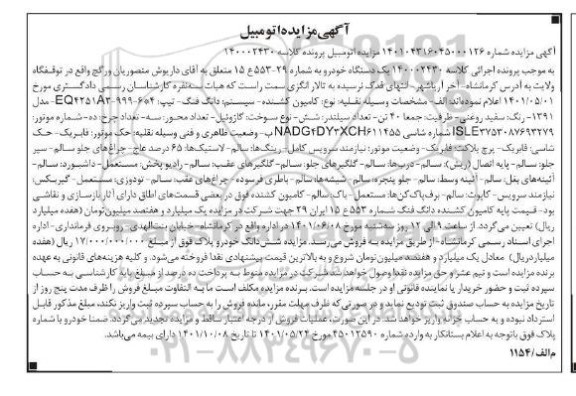 آگهی مزایده اتومبیل
آگهی مزایده شماره ۱۴۰۱۰۴۳۱۶۰۴۵۰۰۰۱۲۶ مزایده اتومبیل پرونده کلاسه ۱۴۰۰۰۲۴۳۰
به موجب پرونده اجرائی کلاسه ۱۴۰۰۰۲۴۳۰ یک دستگاه خودرو به شماره ۲۹-۵۵۳ ع ۱۵ متعلق به آقای داریوش منصوریان ورگچ واقع در توقفگاه
ولایت به آدرس کرمانشاه- آخر آریاشهر- انتهای فدک نرسیده به تالار انگزی سمت راست که هیات سه‌نفره کارشناسان رسمی دادگستری مورخ
۱۴۰۱/۰۵/۰۱ اعلام نموده‌اند: الف- مشخصات وسیله نقلیه: نوع: کامیون کشنده- سیستم: دانگ فنگ- تیپ: EQ4251A2-999-604- مدل
۱۳۹۱- رنگ: سفید روغنی- ظرفیت: جمعا ۴۰ تن- تعداد سیلندر: شش- نوع سوخت: گازوئیل- تعداد محور: سه- تعداد چرخ: ده- شماره موتور:
ISLE۳۷۵۳۰۸۷۶۹۳۲۷۹ شماره شاسی NADG4DY23XCH611455 ب- وضعیت ظاهری و فنی وسیله نقلیه: حک موتور: فابریک- حک
شاسی: فابریک- پرچ پلاک: فابریک- وضعیت موتور: نیازمند سرویس کامل- رینگ‌ها: سالم- لاستیک‌ها: ۶۵ درصد عاج- چراغ‌های جلو سالم- سپر
جلو: سالم- پایه اتصال (ریش): سالم- درب‌ها: سالم- گلگیرهای جلو: سالم- گلگیرهای عقب: سالم- رادیو پخش: مستعمل- داشبورد: سالم-
آئینه‌های بغل: سالم- آئینه وسط: سالم- جلو پنجره: سالم- شیشه‌ها: سالم- باطری فرسوده- چراغ‌های عقب: سالم- تودوزی: مستعمل- گیربکس:
نیازمند سرویس- کاپوت: سالم- برف پاک‌کن‌ها: مستعمل- باک: سالم- کامیون کشنده فوق در بعضی قسمت‌های اطاق دارای آثار بازسازی و نقاشی
بود- قیمت پایه کامیون کشنده دانگ فنگ شماره ۵۵۳ ع ۱۵ ایران ۲۹ جهت شرکت در مزایده یک میلیارد و هفتصد میلیون تومان (هفده میلیارد
ریال) تعیین می‌گردد. از ساعت ۹ الی ۱۲ روز سه‌شنبه مورخ ۱۴۰۱/۰۶/۰۸ در اداره واقع در کرمانشاه- خیابان بنت‌الهدی- روبروی فرمانداری- اداره
اجرای اسناد رسمی کرمانشاه- از طریق مزایده به فروش می‌رسد. مزایده شش‌دانگ خودرو پلاک فوق از مبلغ ۱۷/۰۰۰/۰۰۰/۰۰۰ ریال (هفده
میلیارد ریال) معادل یک میلیارد و هفتصد میلیون تومان شروع و به بالاترین قیمت پیشنهادی نقدا فروخته می‌شود. و کلیه هزینه‌های قانونی به عهده
برنده مزایده است و نیم عشر و حق مزایده نقدا وصول خواهد شد شرکت در مزایده منوط به پرداخت ده درصد از مبلغ پایه کارشناسی به حساب
سپرده ثبت و حضور خریدار یا نماینده قانونی او در جلسه مزایده است. برنده مزایده مکلف است مابه التفاوت مبلغ فروش را ظرف مدت پنج روز از
تاریخ مزایده به حساب صندوق ثبت تودیع نماید و در صورتی که ظرف مهلت مقرر، مانده فروش را به حساب سپرده ثبت واریز نکند، مبلغ مذکور قابل
استرداد نبوده و به حساب خزانه واریز خواهد شد. در این صورت، عملیات فروش از درجه اعتبار ساقط و مزایده تجدید می‌گردد. ضمنا خودرو با شماره
پلاک فوق باتوجه به اعلام بستانکار به وارده شماره ۴۵۰۱۲۵۹۰ مورخ ۱۴۰۱/۰۵/۲۲ تا تاریخ ۱۴۰۱/۱۰/۰۸ دارای بیمه می‌باشد.
م‌الف/۱۱۵۴
۰۲۱-۸۸۳۴۹۶۷۰-۵